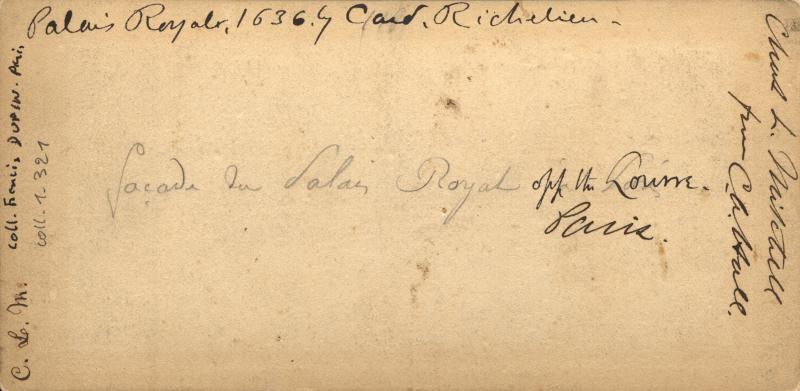 Palais Royale, 1636. by Card. Richelieu.
façade du Palais Royal opp the Louvre.
Paris.
Chas L. Mitchell
from C. A. Hall.
coll. Francis DUPIN. Paris
coll. 1. 321
C. L. M.